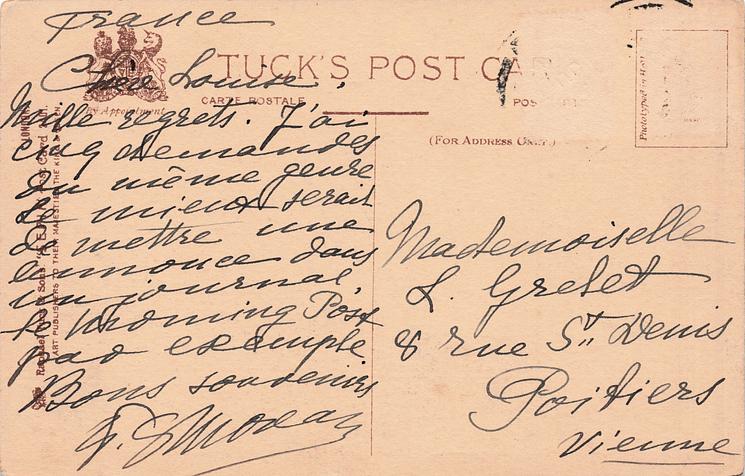 France
TUCK'S POST CA
CARTE POSTALE
POS
By Appointment
(FOR ADDRESS ONLY.)
Chère Louise,
Mille regrets. J'ai
cinq demandes
du même genre
Le mieux serait
de mettre une
annonce dans
un journal,
Morning Post
par exemple
Bons souvenirs
Mademoiselle
L. Grelet
8 rue St. Denis
Poitiers
Vienne
Raphael Tuck & Sons
ART PUBLISHERS TO THEIR MAJESTIES THE KING
Phototyped in